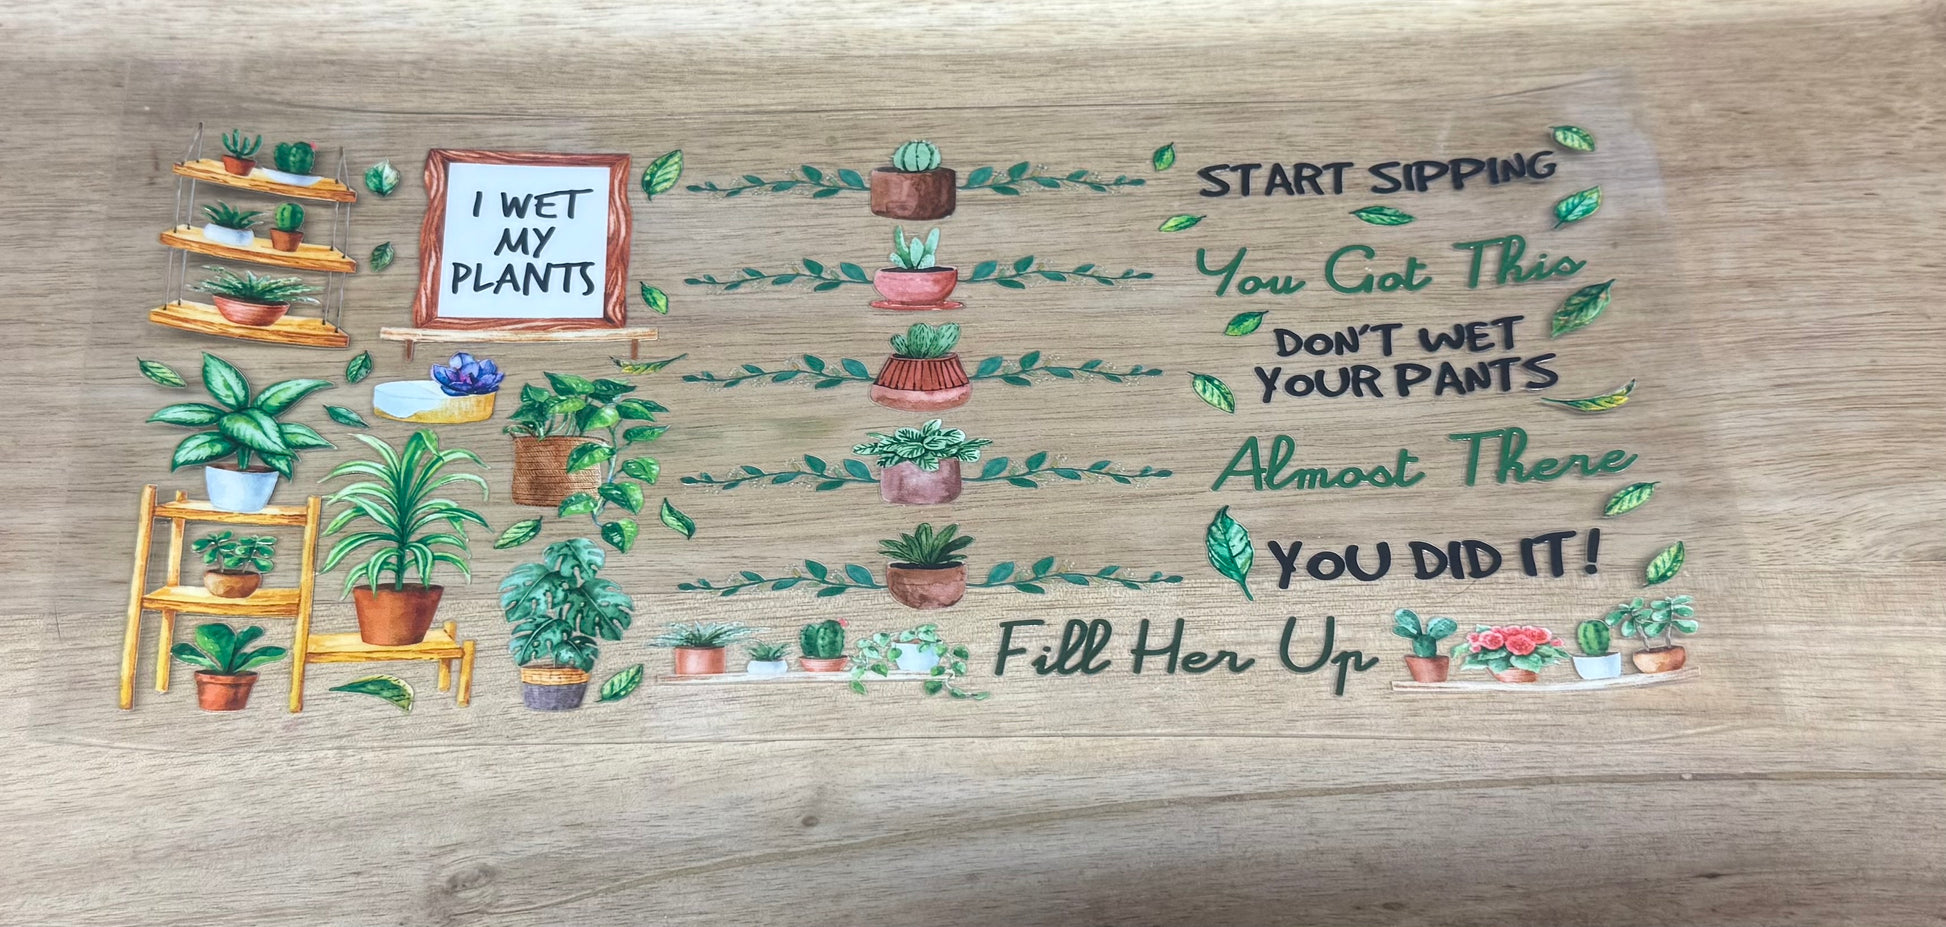 I WET
MY
PLANTS
START SIPPING
You Got This
DON'T WET
YOUR PANTS
Almost There
YOU DID IT!
Fill Her Up